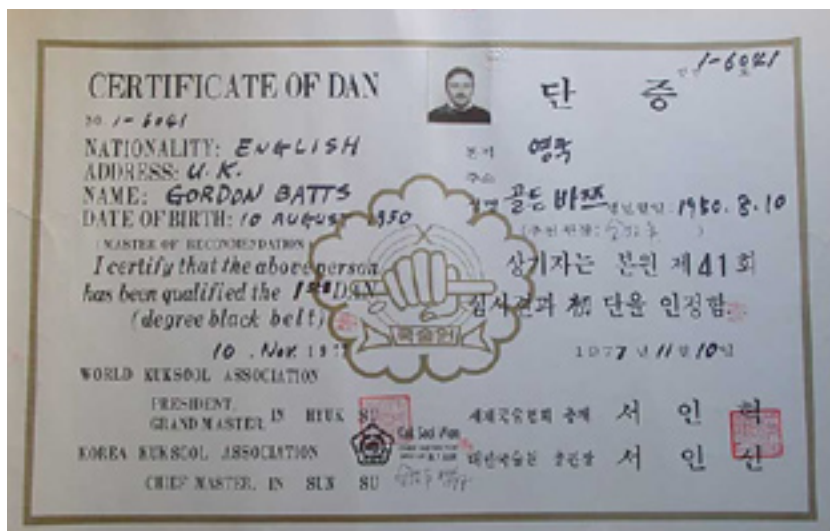 CERTIFICATE OF DAN
NO. 1-6041
NATIONALITY: ENGLISH
ADDRESS: U.K.
NAME: GORDON BATTS
DATE OF BIRTH: 10 AUGUST 1950
(MASTER OF RECOMMENDATION
I certify that the above person
has been qualified the 1st DAN
(degree black belt)
10 . Nov. 197
WORLD KUKSOOL ASSOCIATION
PRESIDENT,
GRAND MASTER, IN HYUK SU
KOREA KUKSOOL ASSOCIATION
CHIEF MASTER, IN SUN SU
1-6041
단 증
본적 영국
주소
성명 골든 바쯔 생년월일: 1950. 8. 10
상기자는 본원 제 41 회
심사결과 初 단을 인정함
1977 년 11 월 10 일
세계국술협회 총재 서 인 혁
대한국술원 총관장 서 인 선
국술원
Kuk Sool Won